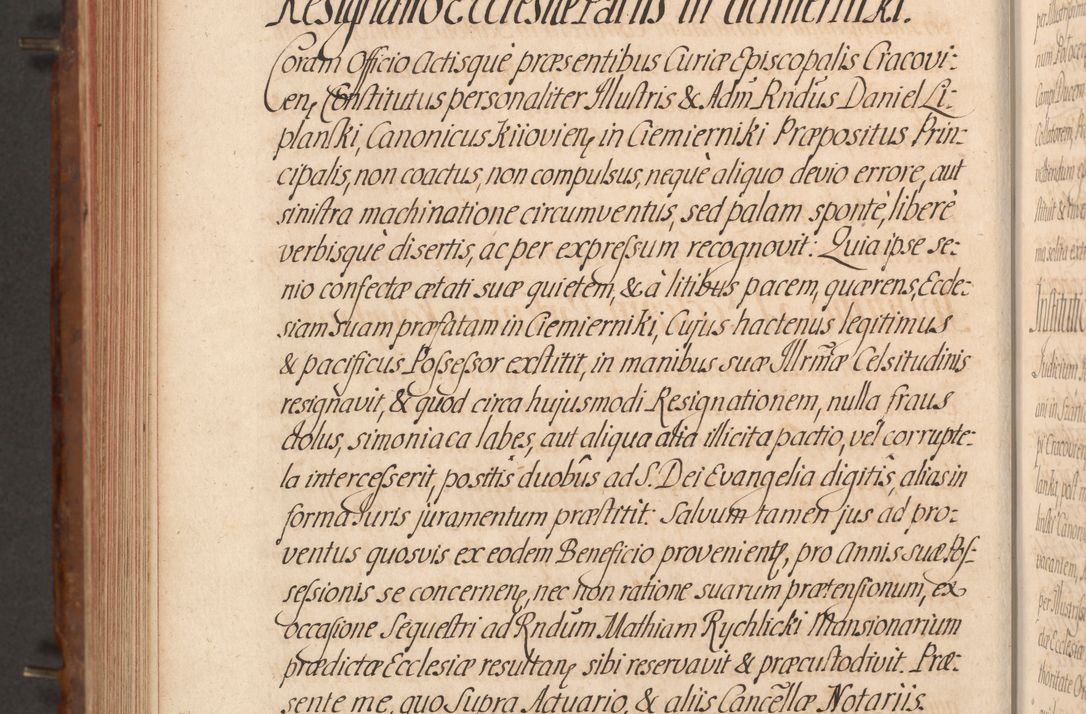 Resignatio Ecclesiæ Parlis in Ciemierniki.
Coram Officio Actisquè præsentibus Curiæ Episcopalis Cracovi:
en, Constitutus personaliter Illustris & Adm̃ Rndus Daniel Li:
planski, Canonicus Kiiovien, in Ciemierniki Præpositus Prin:
cipalis, non coactus, non compulsus, nequè aliquo devio errore, aut
sinistra machinatione circumventus, sed palam spontè, liberè
verbisquè disertis, ac per expressum recognovit: Quia ipse se:
nio confectæ ætati suæ quietem, & à litibus pacem, quærens, Eccle:
siam suam præfatam in Ciemierniki, Cujus hactenus legitimus
& pacificus Possessor exstitit, in manibus suæ Illrmæ Celsitudinis
resignavit, & quod circa hujusmodi Resignationem, nulla fraus
dolus, simoniaca labes, aut aliqua alia illicita pactio, vel corrupte:
la intercesserit, positis duobus ad S. Dei Evangelia digitis, alias in
forma Juris juramentum præstitit: Salvum tamen jus ad pro:
ventus quosvis ex eodem Beneficio provenient, pro Annis suæ Pos:
sessionis se concernen, nec non ratione suarum prætensionum, ex
occasione Sequestri ad Rndum Mathiam Rychlicki Mansionarium
prædictæ Ecclesiæ resultan, sibi reservavit & præcustodivit. Præ:
sente me, quo Supra Actuario, & aliis Cancellæ Notariis.